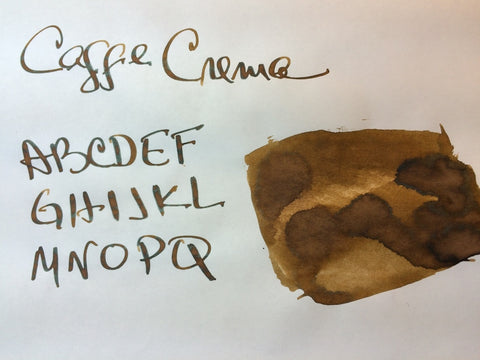 Caffe Crema
ABCDEF
GHIJKL
MNOPQ